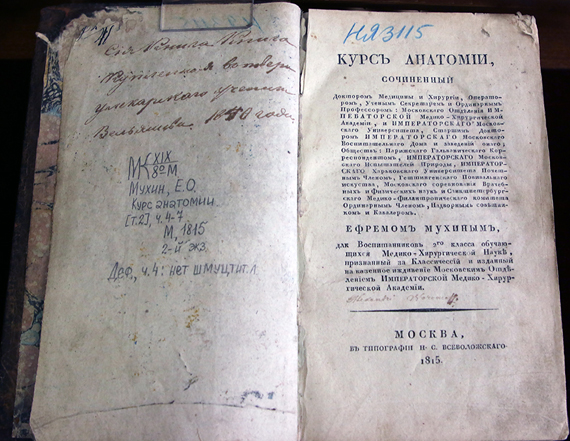 Сія Книга Книга
МК XIX
8° М
Мухин, Е.О.
Курс анатомии
[т.2], ч. 4-7
М, 1815
2-й экз.
Деф., ч. 4: нет шмуцтит. л.
НЯ3115
КУРСЪ АНАТОМІИ,
СОЧИНЕННЫЙ
Докторомъ Медицины и Хирургіи, Операто-
ромъ, Ученымъ Секретаремъ и Ординарнымъ
Профессоромъ: Московскаго Отдѣленія ИМ-
ПЕРАТОРСКОЙ Медико-Хирургической
Академіи, и ИМПЕРАТОРСКАГО Москов-
скаго Университета, Старшимъ Докто-
ромъ ИМПЕРАТОРСКАГО Московскаго
Воспитательнаго Дома и заведеній онаго;
Обществъ: Парижскаго Гальваническаго Кор-
респондентомъ, ИМПЕРАТОРСКИХЪ Московска-
го Испытателей Природы, ИМПЕРАТОР-
СКАГО Харьковскаго Университета Почет-
нымъ Членомъ, Геттингенскаго Повивальнаго
искуства, Московскаго соревнованія Врачеб-
ныхъ и физическихъ наукъ и Санктпетербург-
скаго Медико-филантропическаго комитета
Ординарнымъ Членомъ, Надворнымъ совѣтни-
комъ и Кавалеромъ.
ЕФРЕМОМЪ МУХИНЫМЪ,
для Воспитанниковъ 2го класса обучаю-
щихся Медико-Хирургической Наукѣ,
признанный за Классическій и изданный
на казенное иждивеніе Московскимъ Отдѣ-
леніемъ ИМПЕРАТОРСКОЙ Медико-Хирур-
гической Академіи.
МОСКВА,
ВЪ ТИПОГРАФІИ Н. С. ВСЕВОЛОЖСКАГО.
1815.